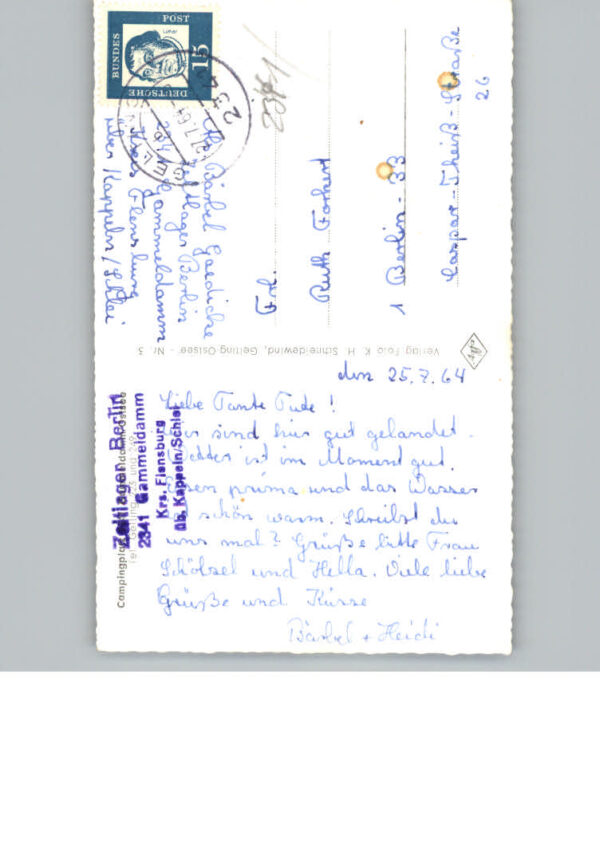 den 25.7.64
Liebe Tante Tude!
Wir sind hier gut gelandet.
Wetter ist im Moment gut.
Essen prima und das Wasser
ist schön warm. Schreibst du
uns mal? Grüße bitte Frau
und Hella. Viele liebe
Grüße und Küsse
Bärbel + Heidi
Zeltlager Berlin
2341 Gammeldamm
Krs. Flensburg
üb. Kappeln/Schlei
Campingplatz
Verlag Foto K. H. Schneidewind, Gelting-Ostsee - Nr. 3
DEUTSCHE
BUNDES
POST
15
Luther
Bärbel Gaedicke
Zeltlager Berlin
Gammeldamm
Kreis Flensburg
über Kappeln/Schlei
Frl.
Ruth Forkert
1 Berlin-33
Caspar-Theiß-Straße
26